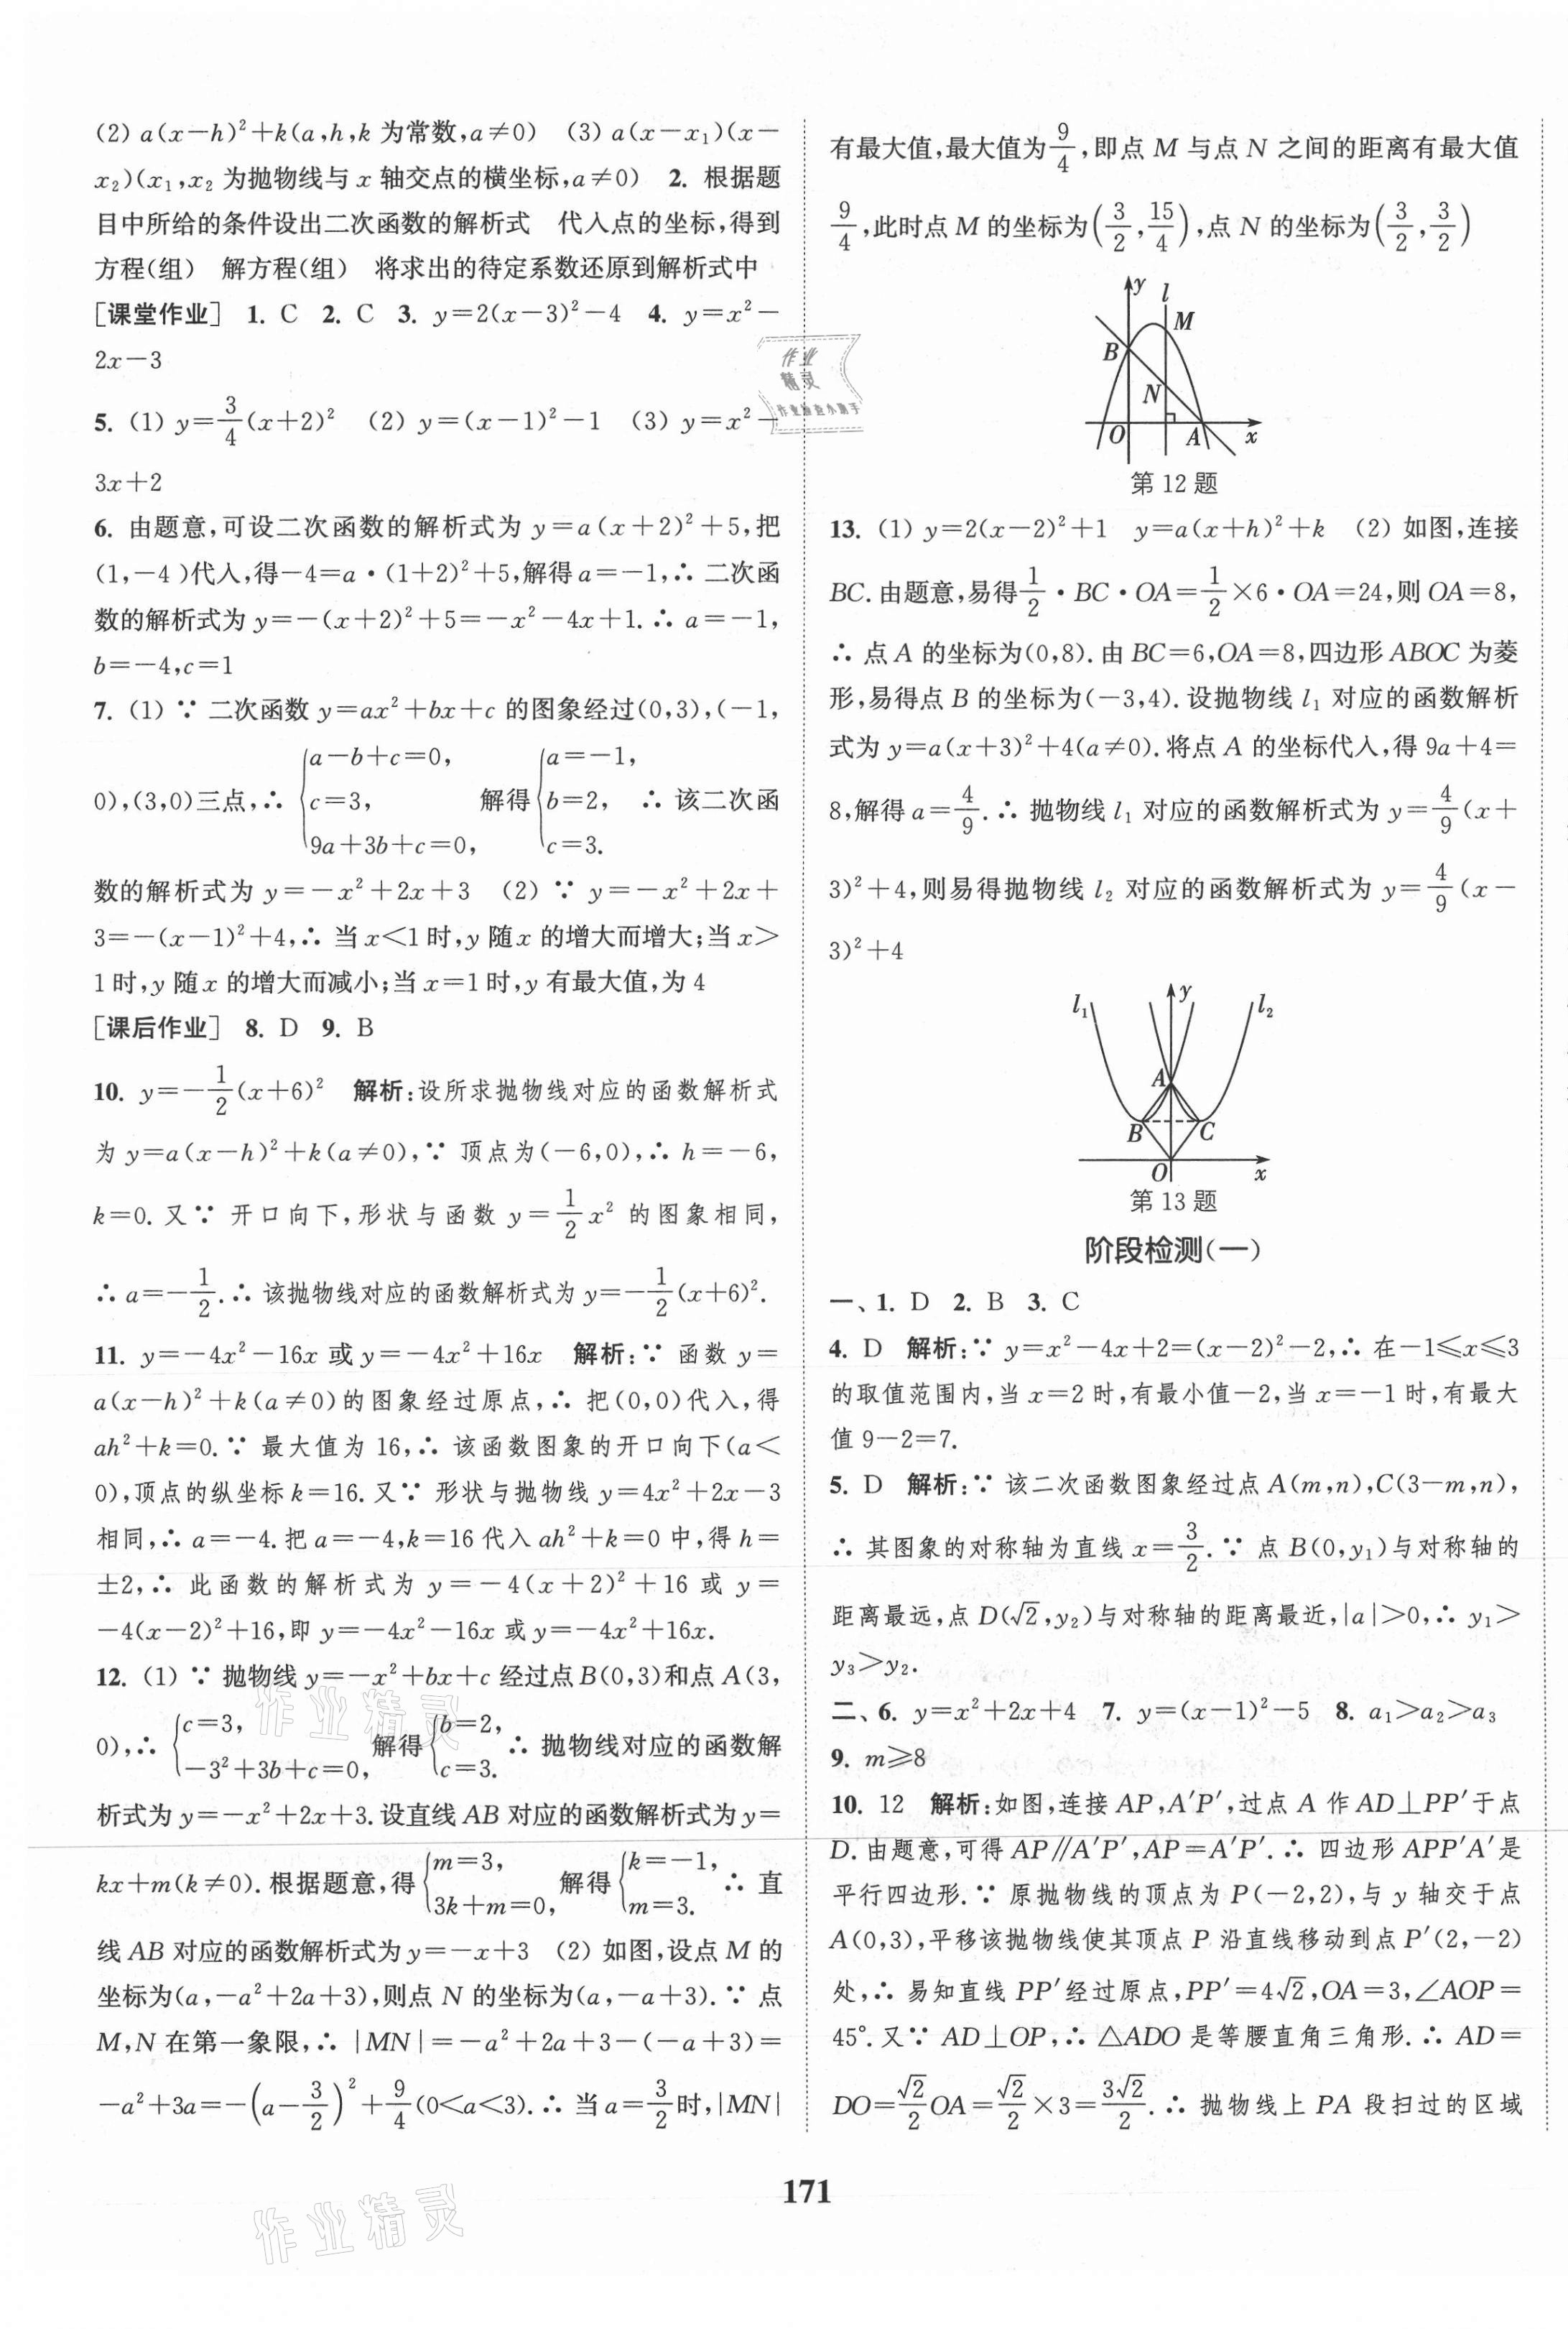 (2) a(x－h)²＋k(a,h,k 为常数,a≠0) (3) a(x－x₁)(x－
x₂)(x₁,x₂ 为抛物线与 x 轴交点的横坐标,a≠0) 2. 根据题
目中所给的条件设出二次函数的解析式 代入点的坐标,得到
方程(组) 解方程(组) 将求出的待定系数还原到解析式中
[课堂作业] 1. C 2. C 3. y＝2(x－3)²－4 4. y＝x²－
2x－3
5. (1) y＝3/4(x＋2)² (2) y＝(x－1)²－1 (3) y＝x²－
3x＋2
6. 由题意,可设二次函数的解析式为 y＝a(x＋2)²＋5,把
(1,－4)代入,得－4＝a·(1＋2)²＋5,解得 a＝－1,∴ 二次函
数的解析式为 y＝－(x＋2)²＋5＝－x²－4x＋1.∴ a＝－1,
b＝－4,c＝1
7. (1) ∵ 二次函数 y＝ax²＋bx＋c 的图象经过(0,3),(－1,
0),(3,0)三点,∴ {a－b＋c＝0, c＝3, 9a＋3b＋c＝0, 解得 {a＝－1, b＝2, c＝3. ∴ 该二次函
数的解析式为 y＝－x²＋2x＋3 (2) ∵ y＝－x²＋2x＋
3＝－(x－1)²＋4,∴ 当 x＜1 时,y 随 x 的增大而增大;当 x＞
1 时,y 随 x 的增大而减小;当 x＝1 时,y 有最大值,为 4
[课后作业] 8. D 9. B
10. y＝－1/2(x＋6)² 解析:设所求抛物线对应的函数解析式
为 y＝a(x－h)²＋k(a≠0),∵ 顶点为(－6,0),∴ h＝－6,
k＝0. 又∵ 开口向下,形状与函数 y＝1/2x² 的图象相同,
∴ a＝－1/2.∴ 该抛物线对应的函数解析式为 y＝－1/2(x＋6)².
11. y＝－4x²－16x 或 y＝－4x²＋16x 解析:∵ 函数 y＝
a(x－h)²＋k(a≠0)的图象经过原点,∴ 把(0,0)代入,得
ah²＋k＝0.∵ 最大值为 16,∴ 该函数图象的开口向下(a＜
0),顶点的纵坐标 k＝16. 又∵ 形状与抛物线 y＝4x²＋2x－3
相同,∴ a＝－4. 把 a＝－4,k＝16 代入 ah²＋k＝0 中,得 h＝
±2,∴ 此函数的解析式为 y＝－4(x＋2)²＋16 或 y＝
－4(x－2)²＋16,即 y＝－4x²－16x 或 y＝－4x²＋16x.
12. (1) ∵ 抛物线 y＝－x²＋bx＋c 经过点 B(0,3)和点 A(3,
0),∴ {c＝3, －3²＋3b＋c＝0, 解得 {b＝2, c＝3. ∴ 抛物线对应的函数解
析式为 y＝－x²＋2x＋3. 设直线 AB 对应的函数解析式为 y＝
kx＋m(k≠0). 根据题意,得 {m＝3, 3k＋m＝0, 解得 {k＝－1, m＝3. ∴ 直
线 AB 对应的函数解析式为 y＝－x＋3 (2) 如图,设点 M 的
坐标为(a,－a²＋2a＋3),则点 N 的坐标为(a,－a＋3).∵ 点
M,N 在第一象限,∴ |MN|＝－a²＋2a＋3－(－a＋3)＝
－a²＋3a＝－(a－3/2)²＋9/4(0＜a＜3).∴ 当 a＝3/2时,|MN|
有最大值,最大值为9/4,即点 M 与点 N 之间的距离有最大值
9/4,此时点 M 的坐标为(3/2,15/4),点 N 的坐标为(3/2,3/2)
y l M B N O A x
第 12 题
13. (1) y＝2(x－2)²＋1 y＝a(x＋h)²＋k (2) 如图,连接
BC. 由题意,易得1/2·BC·OA＝1/2×6·OA＝24,则 OA＝8,
∴ 点 A 的坐标为(0,8). 由 BC＝6,OA＝8,四边形 ABOC 为菱
形,易得点 B 的坐标为(－3,4). 设抛物线 l₁ 对应的函数解析
式为 y＝a(x＋3)²＋4(a≠0). 将点 A 的坐标代入,得 9a＋4＝
8,解得 a＝4/9.∴ 抛物线 l₁ 对应的函数解析式为 y＝4/9(x＋
3)²＋4,则易得抛物线 l₂ 对应的函数解析式为 y＝4/9(x－
3)²＋4
l₁ y l₂ A B C O x
第 13 题
阶段检测(一)
一、1. D 2. B 3. C
4. D 解析:∵ y＝x²－4x＋2＝(x－2)²－2,∴ 在－1≤x≤3
的取值范围内,当 x＝2 时,有最小值－2,当 x＝－1 时,有最大
值 9－2＝7.
5. D 解析:∵ 该二次函数图象经过点 A(m,n),C(3－m,n),
∴ 其图象的对称轴为直线 x＝3/2.∵ 点 B(0,y₁)与对称轴的
距离最远,点 D(√2,y₂)与对称轴的距离最近,|a|＞0,∴ y₁＞
y₃＞y₂.
二、6. y＝x²＋2x＋4 7. y＝(x－1)²－5 8. a₁＞a₂＞a₃
9. m≥8
10. 12 解析:如图,连接 AP,A′P′,过点 A 作 AD⊥PP′于点
D. 由题意,可得 AP∥A′P′,AP＝A′P′.∴ 四边形 APP′A′是
平行四边形.∵ 原抛物线的顶点为 P(－2,2),与 y 轴交于点
A(0,3),平移该抛物线使其顶点 P 沿直线移动到点 P′(2,－2)
处,∴ 易知直线 PP′经过原点,PP′＝4√2,OA＝3,∠AOP＝
45°. 又∵ AD⊥OP,∴ △ADO 是等腰直角三角形.∴ AD＝
DO＝√2/2OA＝√2/2×3＝3√2/2.∴ 抛物线上 PA 段扫过的区域
171
作业精灵
作业精灵
作业
精灵